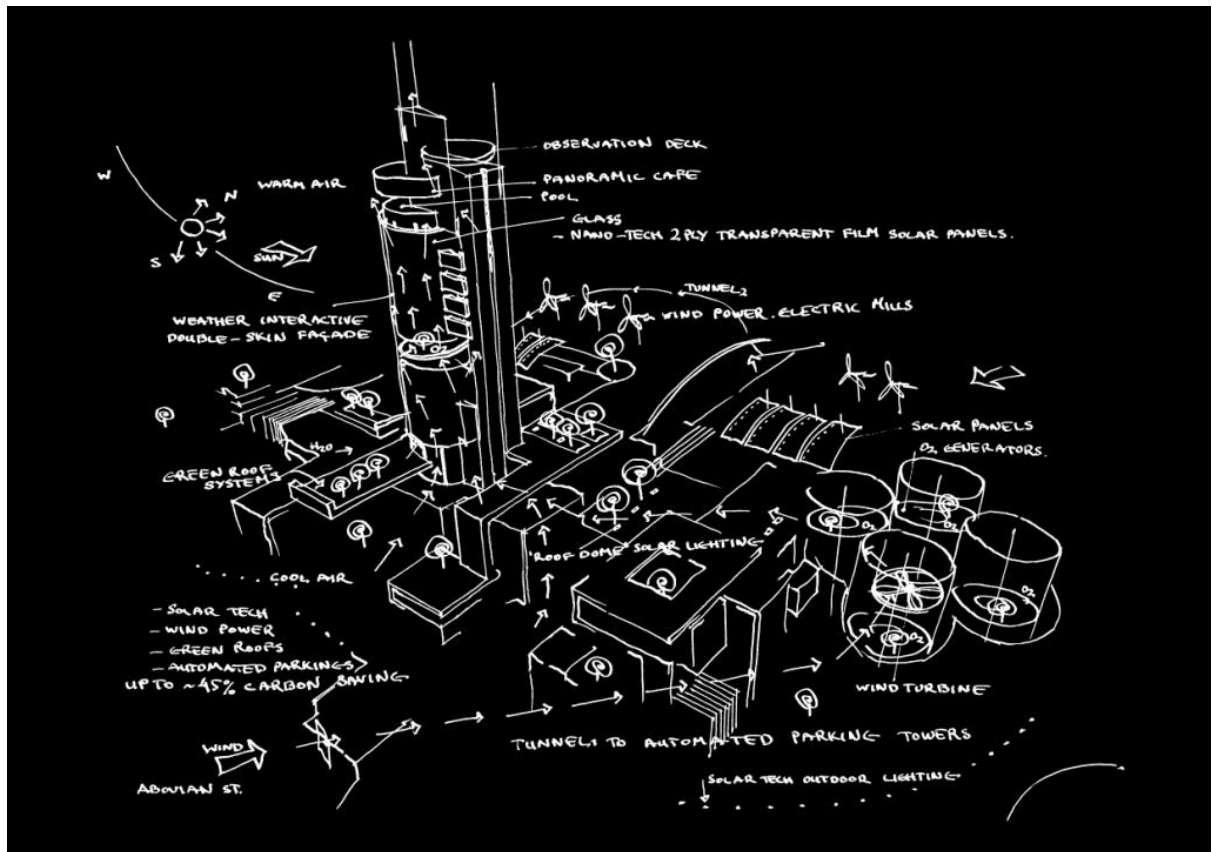 OBSERVATION DECK
PANORAMIC CAFE
POOL
GLASS
- NANO-TECH 2 PLY TRANSPARENT FILM SOLAR PANELS.
W
N
S
E
WARM AIR
SUN
WEATHER INTERACTIVE
DOUBLE-SKIN FAÇADE
TUNNEL2
WIND POWER. ELECTRIC MILLS
SOLAR PANELS
O2 GENERATORS.
O2
H2O
GREEN ROOF
SYSTEMS
O2
O2
O2
O2
"ROOF DOME" SOLAR LIGHTING
COOL AIR
- SOLAR TECH
- WIND POWER
- GREEN ROOFS
- AUTOMATED PARKINGS
UP TO ~45% CARBON SAVING
WIND
ABOVIAN ST.
WIND TURBINE
TUNNEL1 TO AUTOMATED PARKING TOWERS
SOLAR TECH OUTDOOR LIGHTING